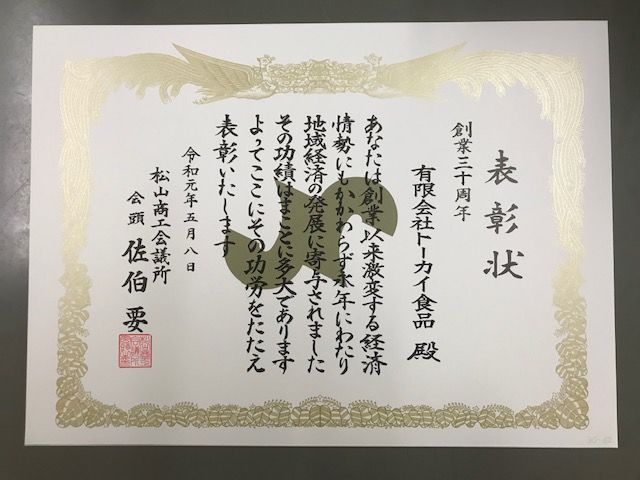 表彰状
創業三十周年
有限会社トーカイ食品 殿
あなたは創業以来激変する経済
情勢にもかかわらず永年にわたり
地域経済の発展に寄与されました
その功績はまことに多大であります
よってここにその功労をたたえ
表彰いたします
令和元年五月八日
松山商工会議所
会頭 佐伯 要